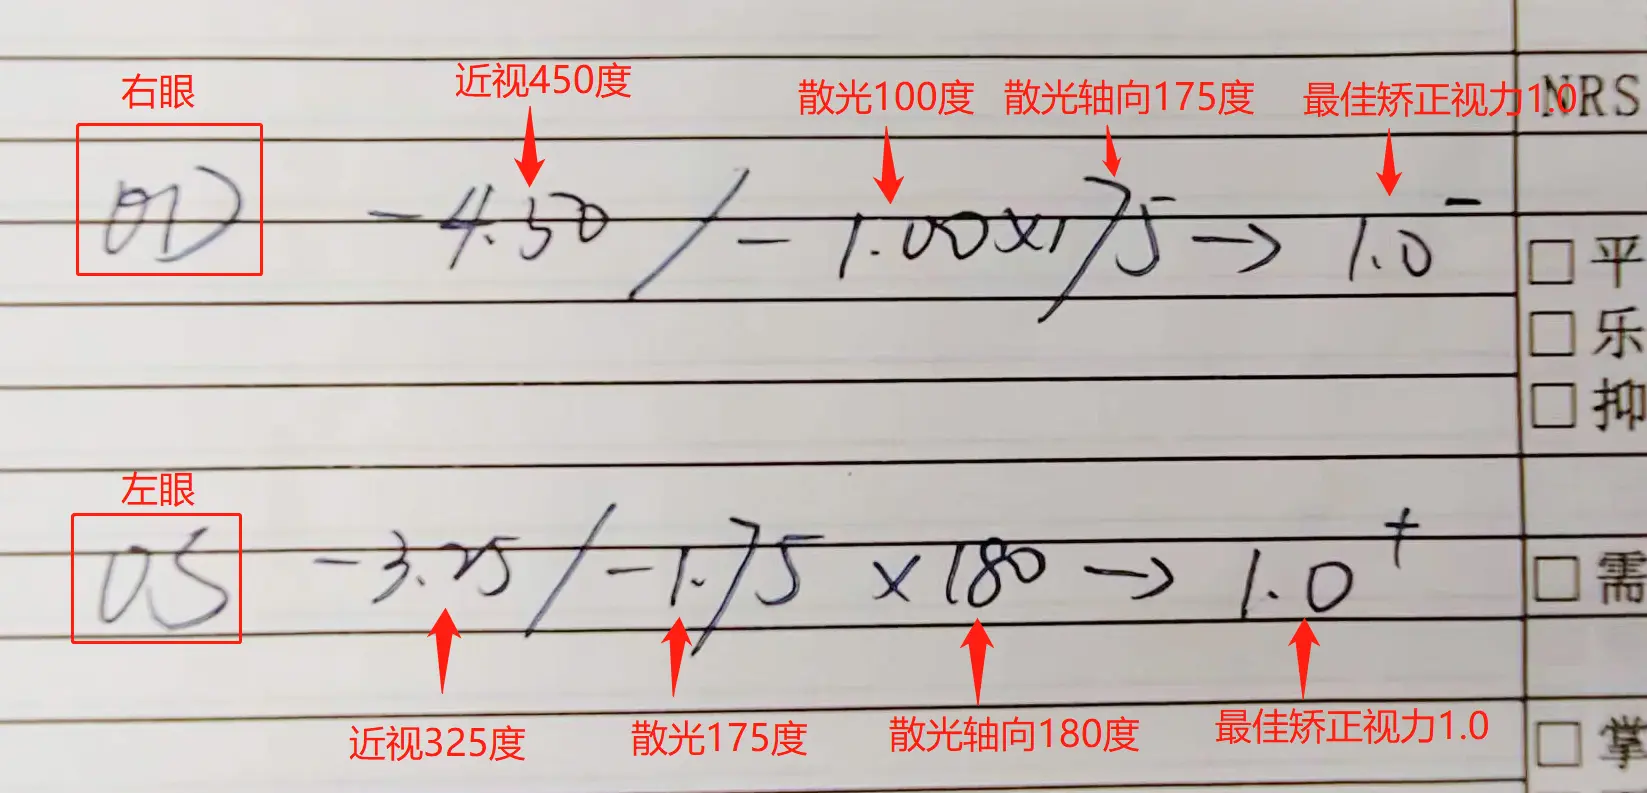 右眼 近视450度 散光100度 散光轴向175度 最佳矫正视力1.0
NRS
OD -4.50 / -1.00×175 → 1.0⁻
□ 平
□ 乐
□ 抑
左眼
OS -3.25 / -1.75 ×180 → 1.0⁺
□ 需
近视325度 散光175度 散光轴向180度 最佳矫正视力1.0
□ 掌